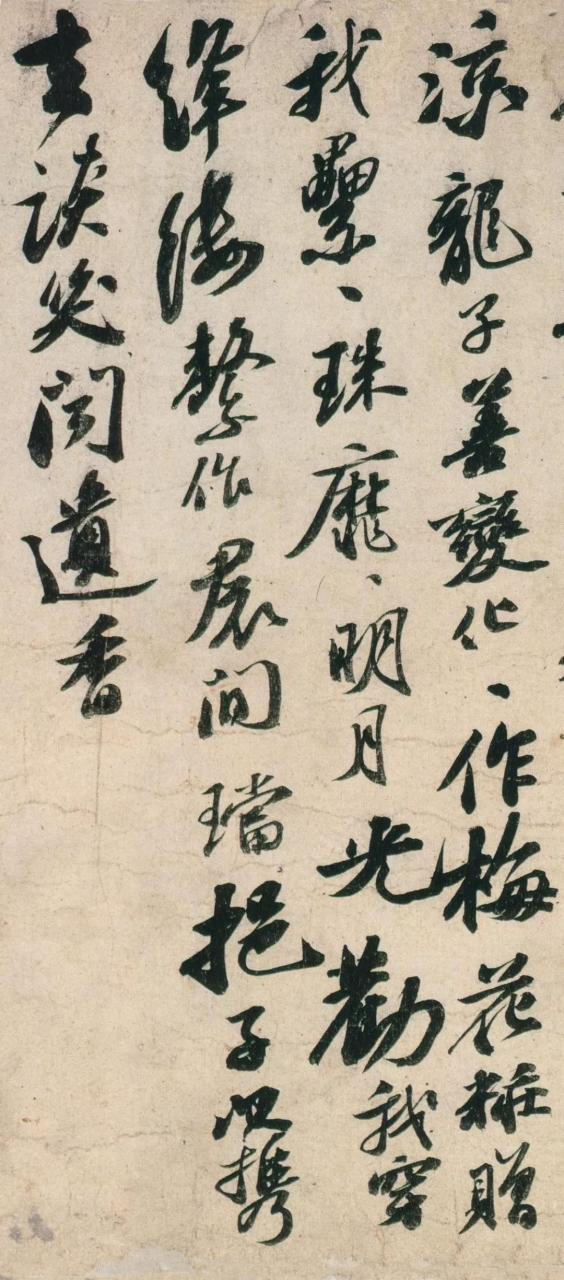 涼龍子善變化、作梅花粧贈
我纍、珠靡、明月光勸我穿
絳縷繫作裠間璫挹子以携
去談笑聞遺香